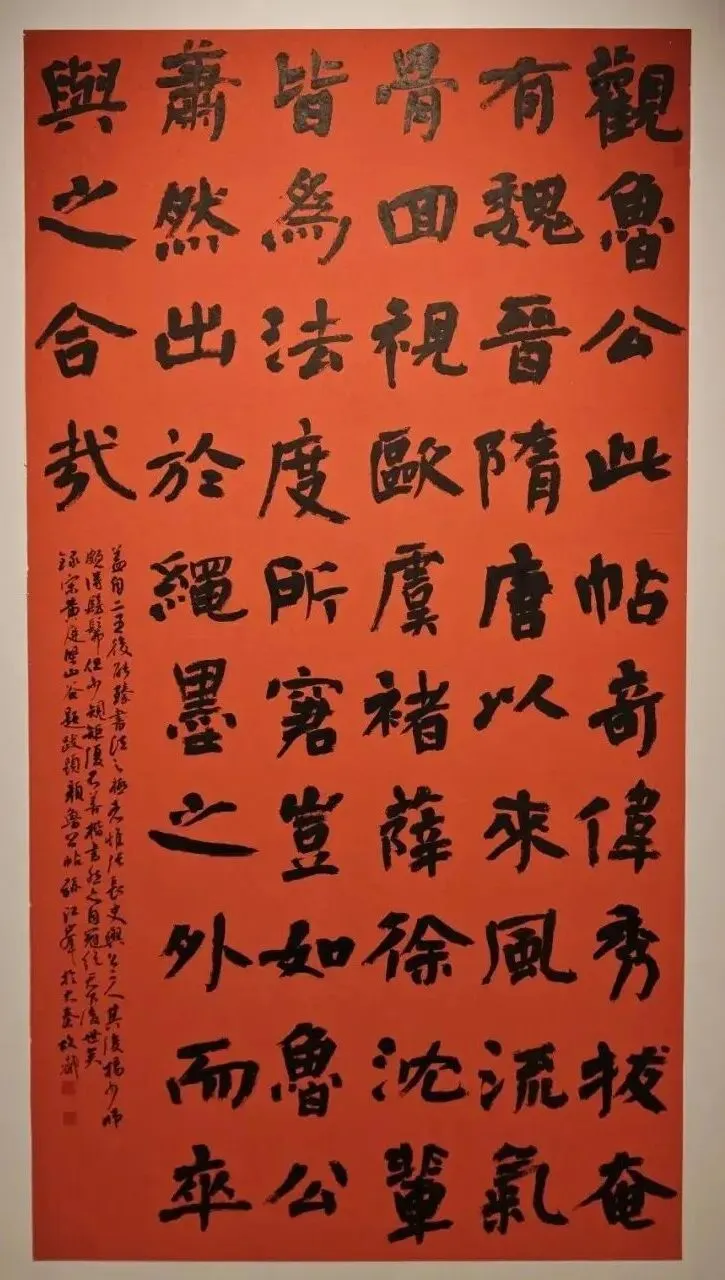 觀魯公此帖奇偉秀拔奄
有魏晉隋唐以來風流氣
骨回視歐虞褚薛徐沈輩
皆爲法度所窘豈如魯公
蕭然出於繩墨之外而卒
與之合哉
蓋自二王後能臻書法之極者惟張長史與公二人其後楊少師
頗得髣髴但少規矩復不善楷書然亦自冠絕天下後世矣
錄宋黃庭堅山谷題跋題顏魯公帖 江峰於大秦故